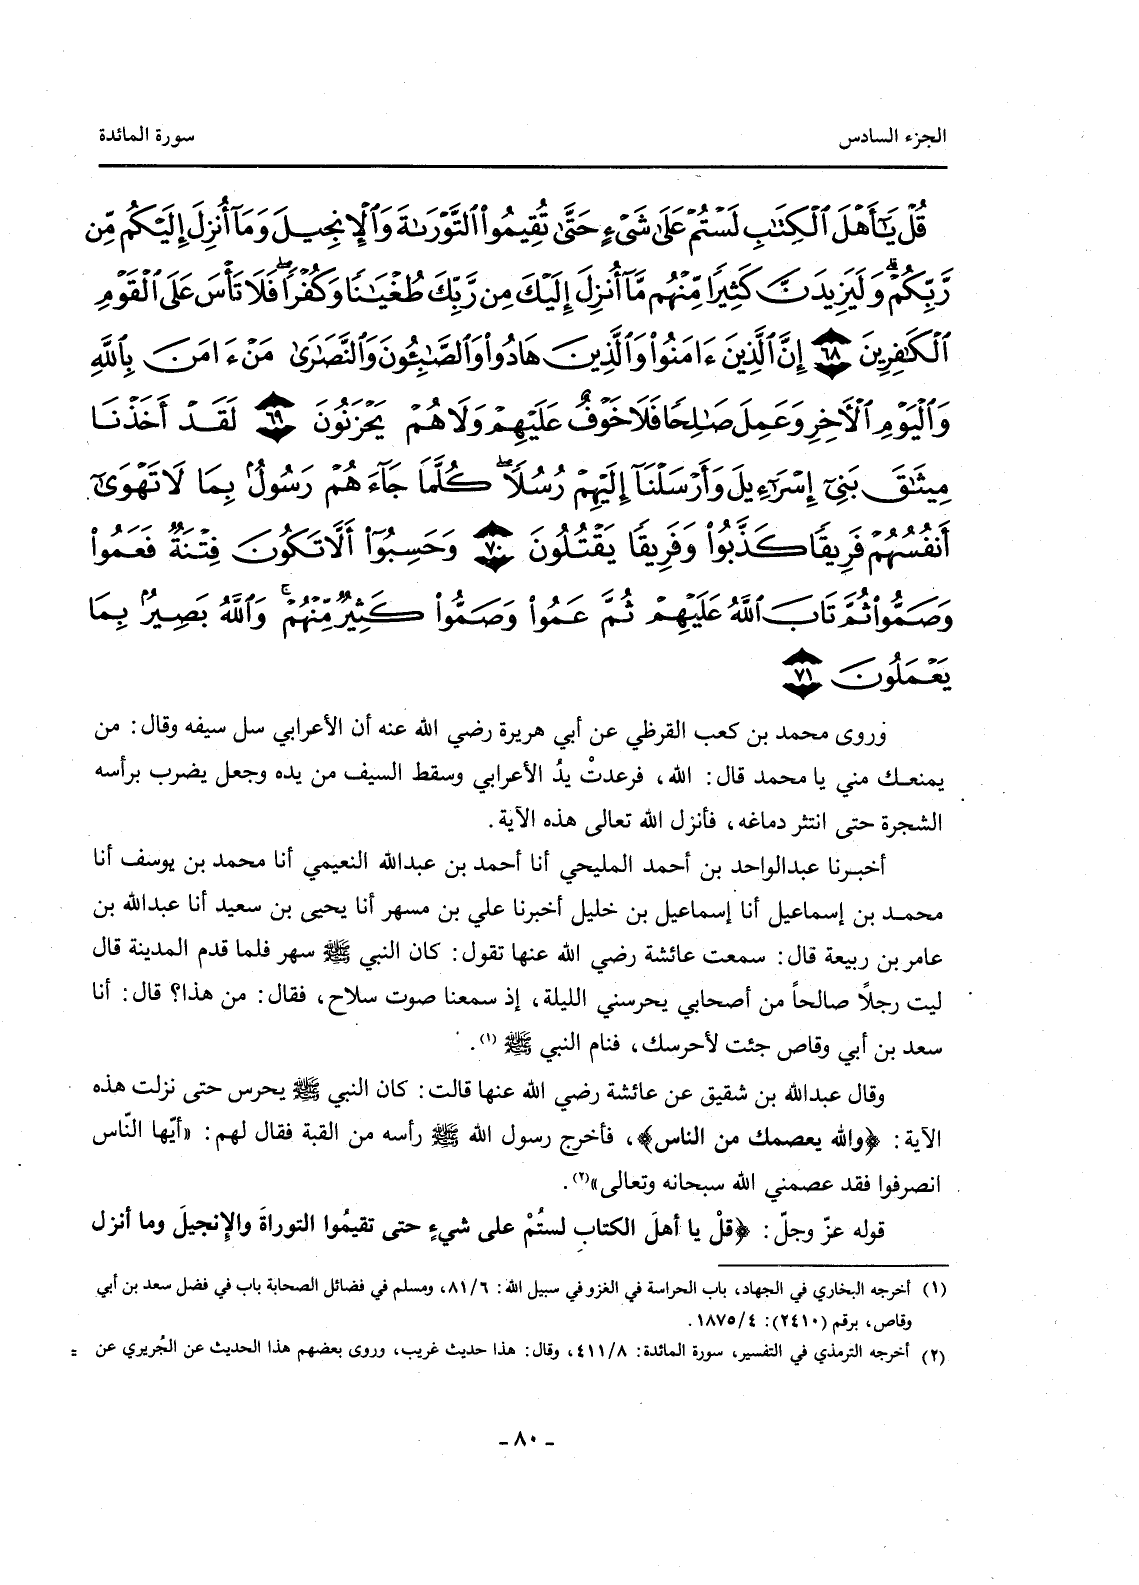 الجزء السادس
سورة المائدة
قُلْ يَٰٓأَهْلَ ٱلْكِتَٰبِ لَسْتُمْ عَلَىٰ شَىْءٍ حَتَّىٰ تُقِيمُوا۟ ٱلتَّوْرَىٰةَ وَٱلْإِنجِيلَ وَمَآ أُنزِلَ إِلَيْكُم مِّن
رَّبِّكُمْ ۗ وَلَيَزِيدَنَّ كَثِيرًا مِّنْهُم مَّآ أُنزِلَ إِلَيْكَ مِن رَّبِّكَ طُغْيَٰنًا وَكُفْرًا ۖ فَلَا تَأْسَ عَلَى ٱلْقَوْمِ
ٱلْكَٰفِرِينَ ٦٨ إِنَّ ٱلَّذِينَ ءَامَنُوا۟ وَٱلَّذِينَ هَادُوا۟ وَٱلصَّٰبِـُٔونَ وَٱلنَّصَٰرَىٰ مَنْ ءَامَنَ بِٱللَّهِ
وَٱلْيَوْمِ ٱلْءَاخِرِ وَعَمِلَ صَٰلِحًا فَلَا خَوْفٌ عَلَيْهِمْ وَلَا هُمْ يَحْزَنُونَ ٦٩ لَقَدْ أَخَذْنَا
مِيثَٰقَ بَنِىٓ إِسْرَٰٓءِيلَ وَأَرْسَلْنَآ إِلَيْهِمْ رُسُلًا ۖ كُلَّمَا جَآءَهُمْ رَسُولٌۢ بِمَا لَا تَهْوَىٰٓ
أَنفُسُهُمْ فَرِيقًا كَذَّبُوا۟ وَفَرِيقًا يَقْتُلُونَ ٧٠ وَحَسِبُوٓا۟ أَلَّا تَكُونَ فِتْنَةٌ فَعَمُوا۟
وَصَمُّوا۟ ثُمَّ تَابَ ٱللَّهُ عَلَيْهِمْ ثُمَّ عَمُوا۟ وَصَمُّوا۟ كَثِيرٌ مِّنْهُمْ ۚ وَٱللَّهُ بَصِيرٌۢ بِمَا
يَعْمَلُونَ ٧١
وروى محمد بن كعب القرظي عن أبي هريرة رضي الله عنه أن الأعرابي سل سيفه وقال: من
يمنعك مني يا محمد قال: الله، فرعدتْ يدُ الأعرابي وسقط السيف من يده وجعل يضرب برأسه
الشجرة حتى انتثر دماغه، فأنزل الله تعالى هذه الآية.
أخبرنا عبدالواحد بن أحمد المليحي أنا أحمد بن عبدالله النعيمي أنا محمد بن يوسف أنا
محمد بن إسماعيل أنا إسماعيل بن خليل أخبرنا علي بن مسهر أنا يحيى بن سعيد أنا عبدالله بن
عامر بن ربيعة قال: سمعت عائشة رضي الله عنها تقول: كان النبي ﷺ سهر فلما قدم المدينة قال
ليت رجلاً صالحاً من أصحابي يحرسني الليلة، إذ سمعنا صوت سلاح، فقال: من هذا؟ قال: أنا
سعد بن أبي وقاص جئت لأحرسك، فنام النبي ﷺ (١).
وقال عبدالله بن شقيق عن عائشة رضي الله عنها قالت: كان النبي ﷺ يحرس حتى نزلت هذه
الآية: ﴿والله يعصمك من الناس﴾، فأخرج رسول الله ﷺ رأسه من القبة فقال لهم: «أيّها النّاس
انصرفوا فقد عصمني الله سبحانه وتعالى»(٢).
قوله عزّ وجلّ: ﴿قلْ يا أهلَ الكتابِ لستُمْ على شيءٍ حتى تقيمُوا التوراةَ والإنجيلَ وما أنزل
(١) أخرجه البخاري في الجهاد، باب الحراسة في الغزو في سبيل الله: ٨١/٦، ومسلم في فضائل الصحابة باب في فضل سعد بن أبي
وقاص، برقم (٢٤١٠): ١٨٧٥/٤.
(٢) أخرجه الترمذي في التفسير، سورة المائدة: ٤١١/٨، وقال: هذا حديث غريب، وروى بعضهم هذا الحديث عن الجُريري عن =
- ٨٠ -